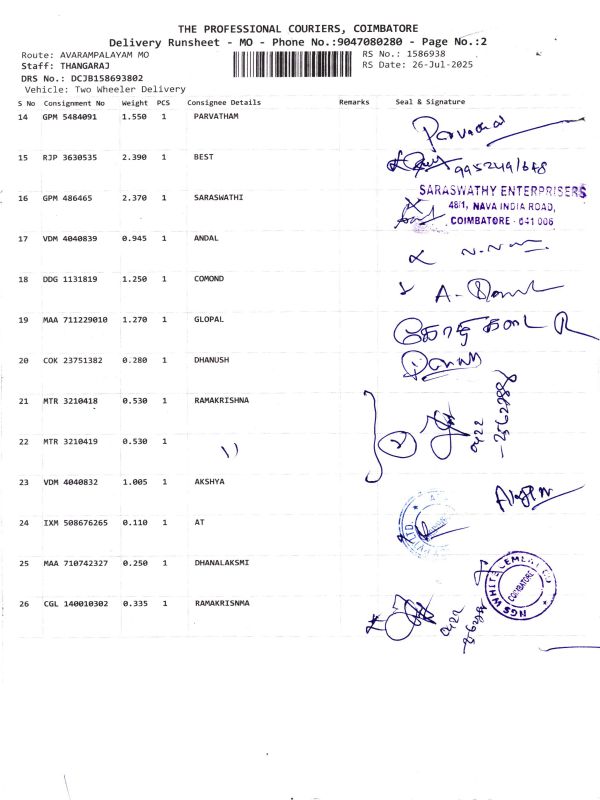 THE PROFESSIONAL COURIERS, COIMBATORE
Delivery Runsheet - MO - Phone No.:9047080280 - Page No.:2
Route: AVARAMPALAYAM MO
RS No.: 1586938
Staff: THANGARAJ
RS Date: 26-Jul-2025
DRS No.: DCJB158693802
Vehicle: Two Wheeler Delivery
S No Consignment No Weight PCS Consignee Details Remarks Seal & Signature
14 GPM 5484091 1.550 1 PARVATHAM
15 RJP 3630535 2.390 1 BEST
16 GPM 486465 2.370 1 SARASWATHI
SARASWATHY ENTERPRISERS
48/1, NAVA INDIA ROAD,
COIMBATORE - 641 006
17 VDM 4040839 0.945 1 ANDAL
18 DDG 1131819 1.250 1 COMOND
19 MAA 711229010 1.270 1 GLOPAL
20 COK 23751382 0.280 1 DHANUSH
21 MTR 3210418 0.530 1 RAMAKRISHNA
22 MTR 3210419 0.530 1 11
23 VDM 4040832 1.005 1 AKSHYA
24 IXM 508676265 0.110 1 AT
25 MAA 710742327 0.250 1 DHANALAKSMI
NGS WHITE CEMENT CO
COIMBATORE
26 CGL 140010302 0.335 1 RAMAKRISNMA
0422